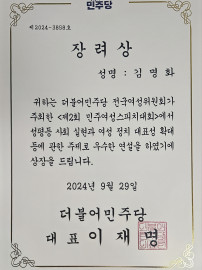 민주당
제 2024-3858호
장려상
성명 : 김명화
귀하는 더불어민주당 전국여성위원회가
주최한 <제2회 민주여성스피치대회>에서
성평등 사회 실현과 여성 정치 대표성 확대
등에 관한 주제로 우수한 연설을 하였기에
상장을 드립니다.
2024년 9월 29일
더불어민주당
대표 이재명